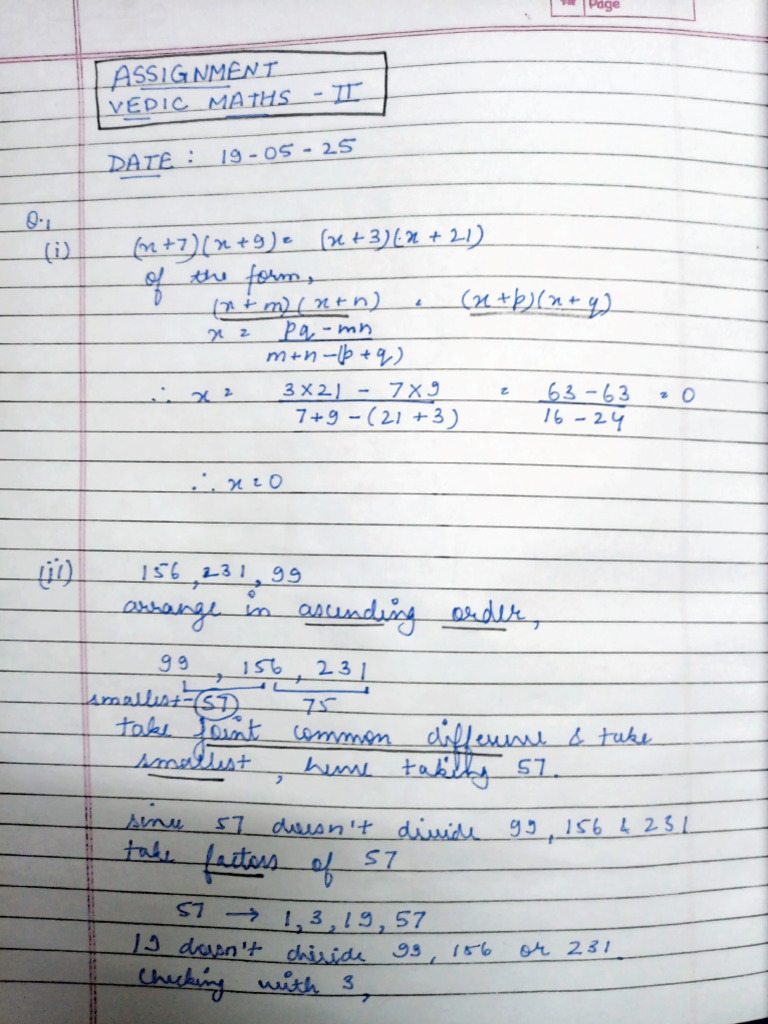 Page
ASSIGNMENT
VEDIC MATHS - II
DATE : 19-05-25
Q.1
(i) (x+7)(x+9) = (x+3)(x+21)
of the form,
(x+m)(x+n) = (x+p)(x+q)
x = pq-mn
m+n-(p+q)
∴ x = 3×21 - 7×9 = 63-63 = 0
7+9-(21+3) 16-24
∴ x=0
(ii) 156, 231, 99
arrange in ascending order,
99, 156, 231
smallest-57 75
take joint common difference & take
smallest, hence taking 57.
since 57 doesn't divide 99, 156 & 231
take factors of 57
57 → 1, 3, 19, 57
19 doesn't divide 99, 156 or 231.
Checking with 3,